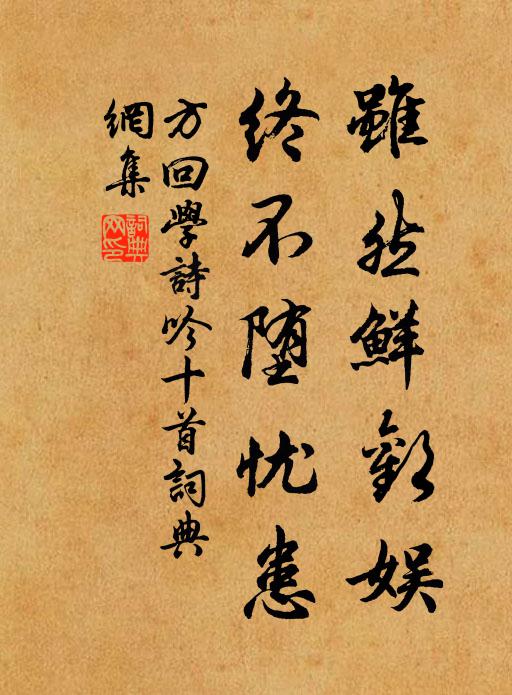 雖然鮮歡娛
終不堕忧患
方回學詩吟十首詞典
網集
詞典
网印